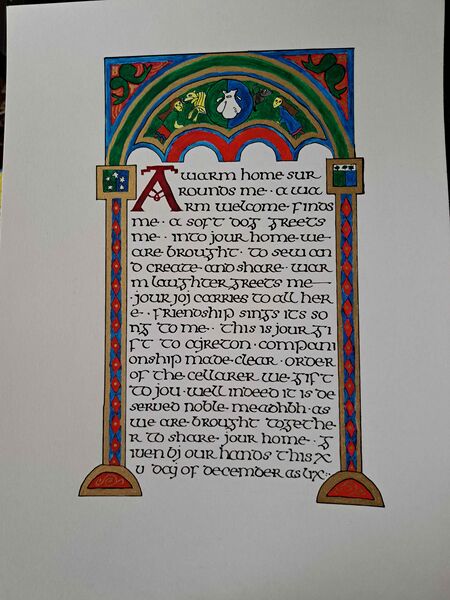 A warm home sur
rounds me · a wa
rm welcome finds
me · a soft dog greets
me · into your home we
are brought · to sew an
d create and share · war
m laughter greets me —
· your joy carries to all her
e · friendship sings its so
ng to me · this is your gi
ft to ayreton · compani
onship made clear · order
of the cellarer we gift
to you · well indeed it is de
served noble meadhbh · as
we are brought togethe
r to share your home · g
iven by our hands this x
v day of december as lix ·